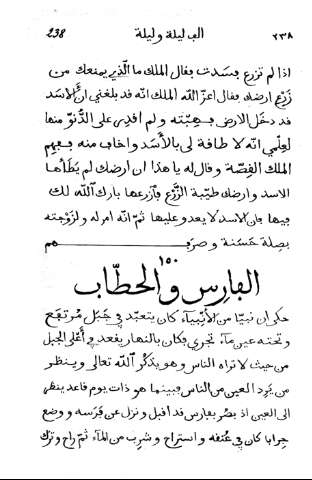 ٢٣٨ الف ليلة وليلة 238
اذا لم تزرع فسدت فقال الملك ما الذي يمنعك من
زرع ارضك فقال اعز الله الملك انه قد بلغني ان الاسد
قد دخل الارض فهبته ولم اقدر على الدنو منها
لعلمي انه لا طاقة لي بالاسد واخاف منه ففهم
الملك القصة وقال له يا هذا ان ارضك لم يطأها
الاسد وارضك طيبة الزرع فازرعها بارك الله لك
فيها فان الاسد لا يعدو عليها ثم انه امر له ولزوجته
بصلة حسنة وصرفهم
١٥٠
الفارس والحطاب
حكى ان نبيا من الأنبياء كان يتعبد في جبل مرتفع
وتحته عين ماء تجري فكان بالنهار يقعد في أعلى الجبل
من حيث لا تراه الناس وهو يذكر الله تعالى وينظر
من يرد العين من الناس فبينما هو ذات يوم قاعد ينظر
الى العين اذ بصر بفارس قد اقبل ونزل عن فرسه ووضع
جرابا كان في عنقه واستراح وشرب من الماء ثم راح وترك